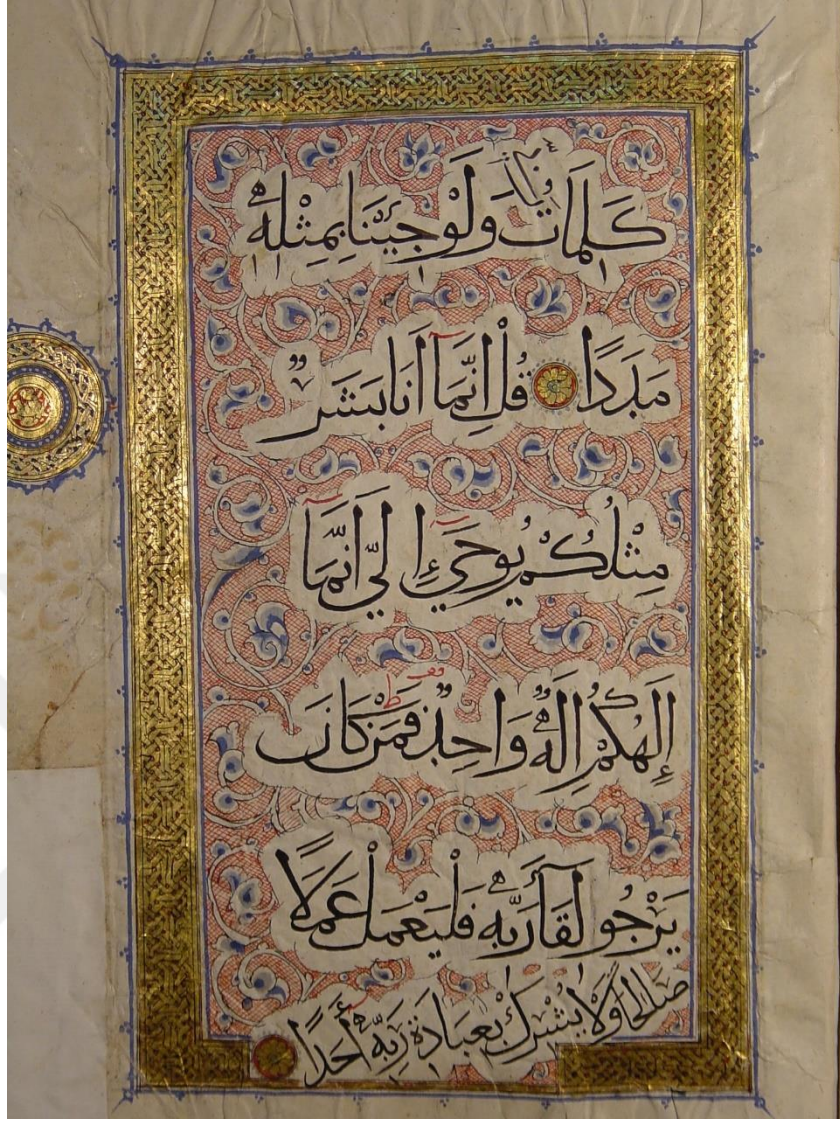 كَلِمَاتُ رَبِّي وَلَوْ جِيْنَا بِمِثْلِهِ
مَدَدًا قُلْ اِنَّمَآ اَنَا بَشَرٌ
مِثْلُكُمْ يُوحَيٓ إِلَيَّ اَنَّمَآ
إِلَهُكُمْ اِلَهٌ وَاحِدٌ فَمَنْ كَانَ
يَرْجُو لِقَآءَ رَبِّهِ فَلْيَعْمَلْ عَمَلًا
صَالِحًا وَلَا يُشْرِكْ بِعِبَادَةِ رَبِّهِ أَحَدًا